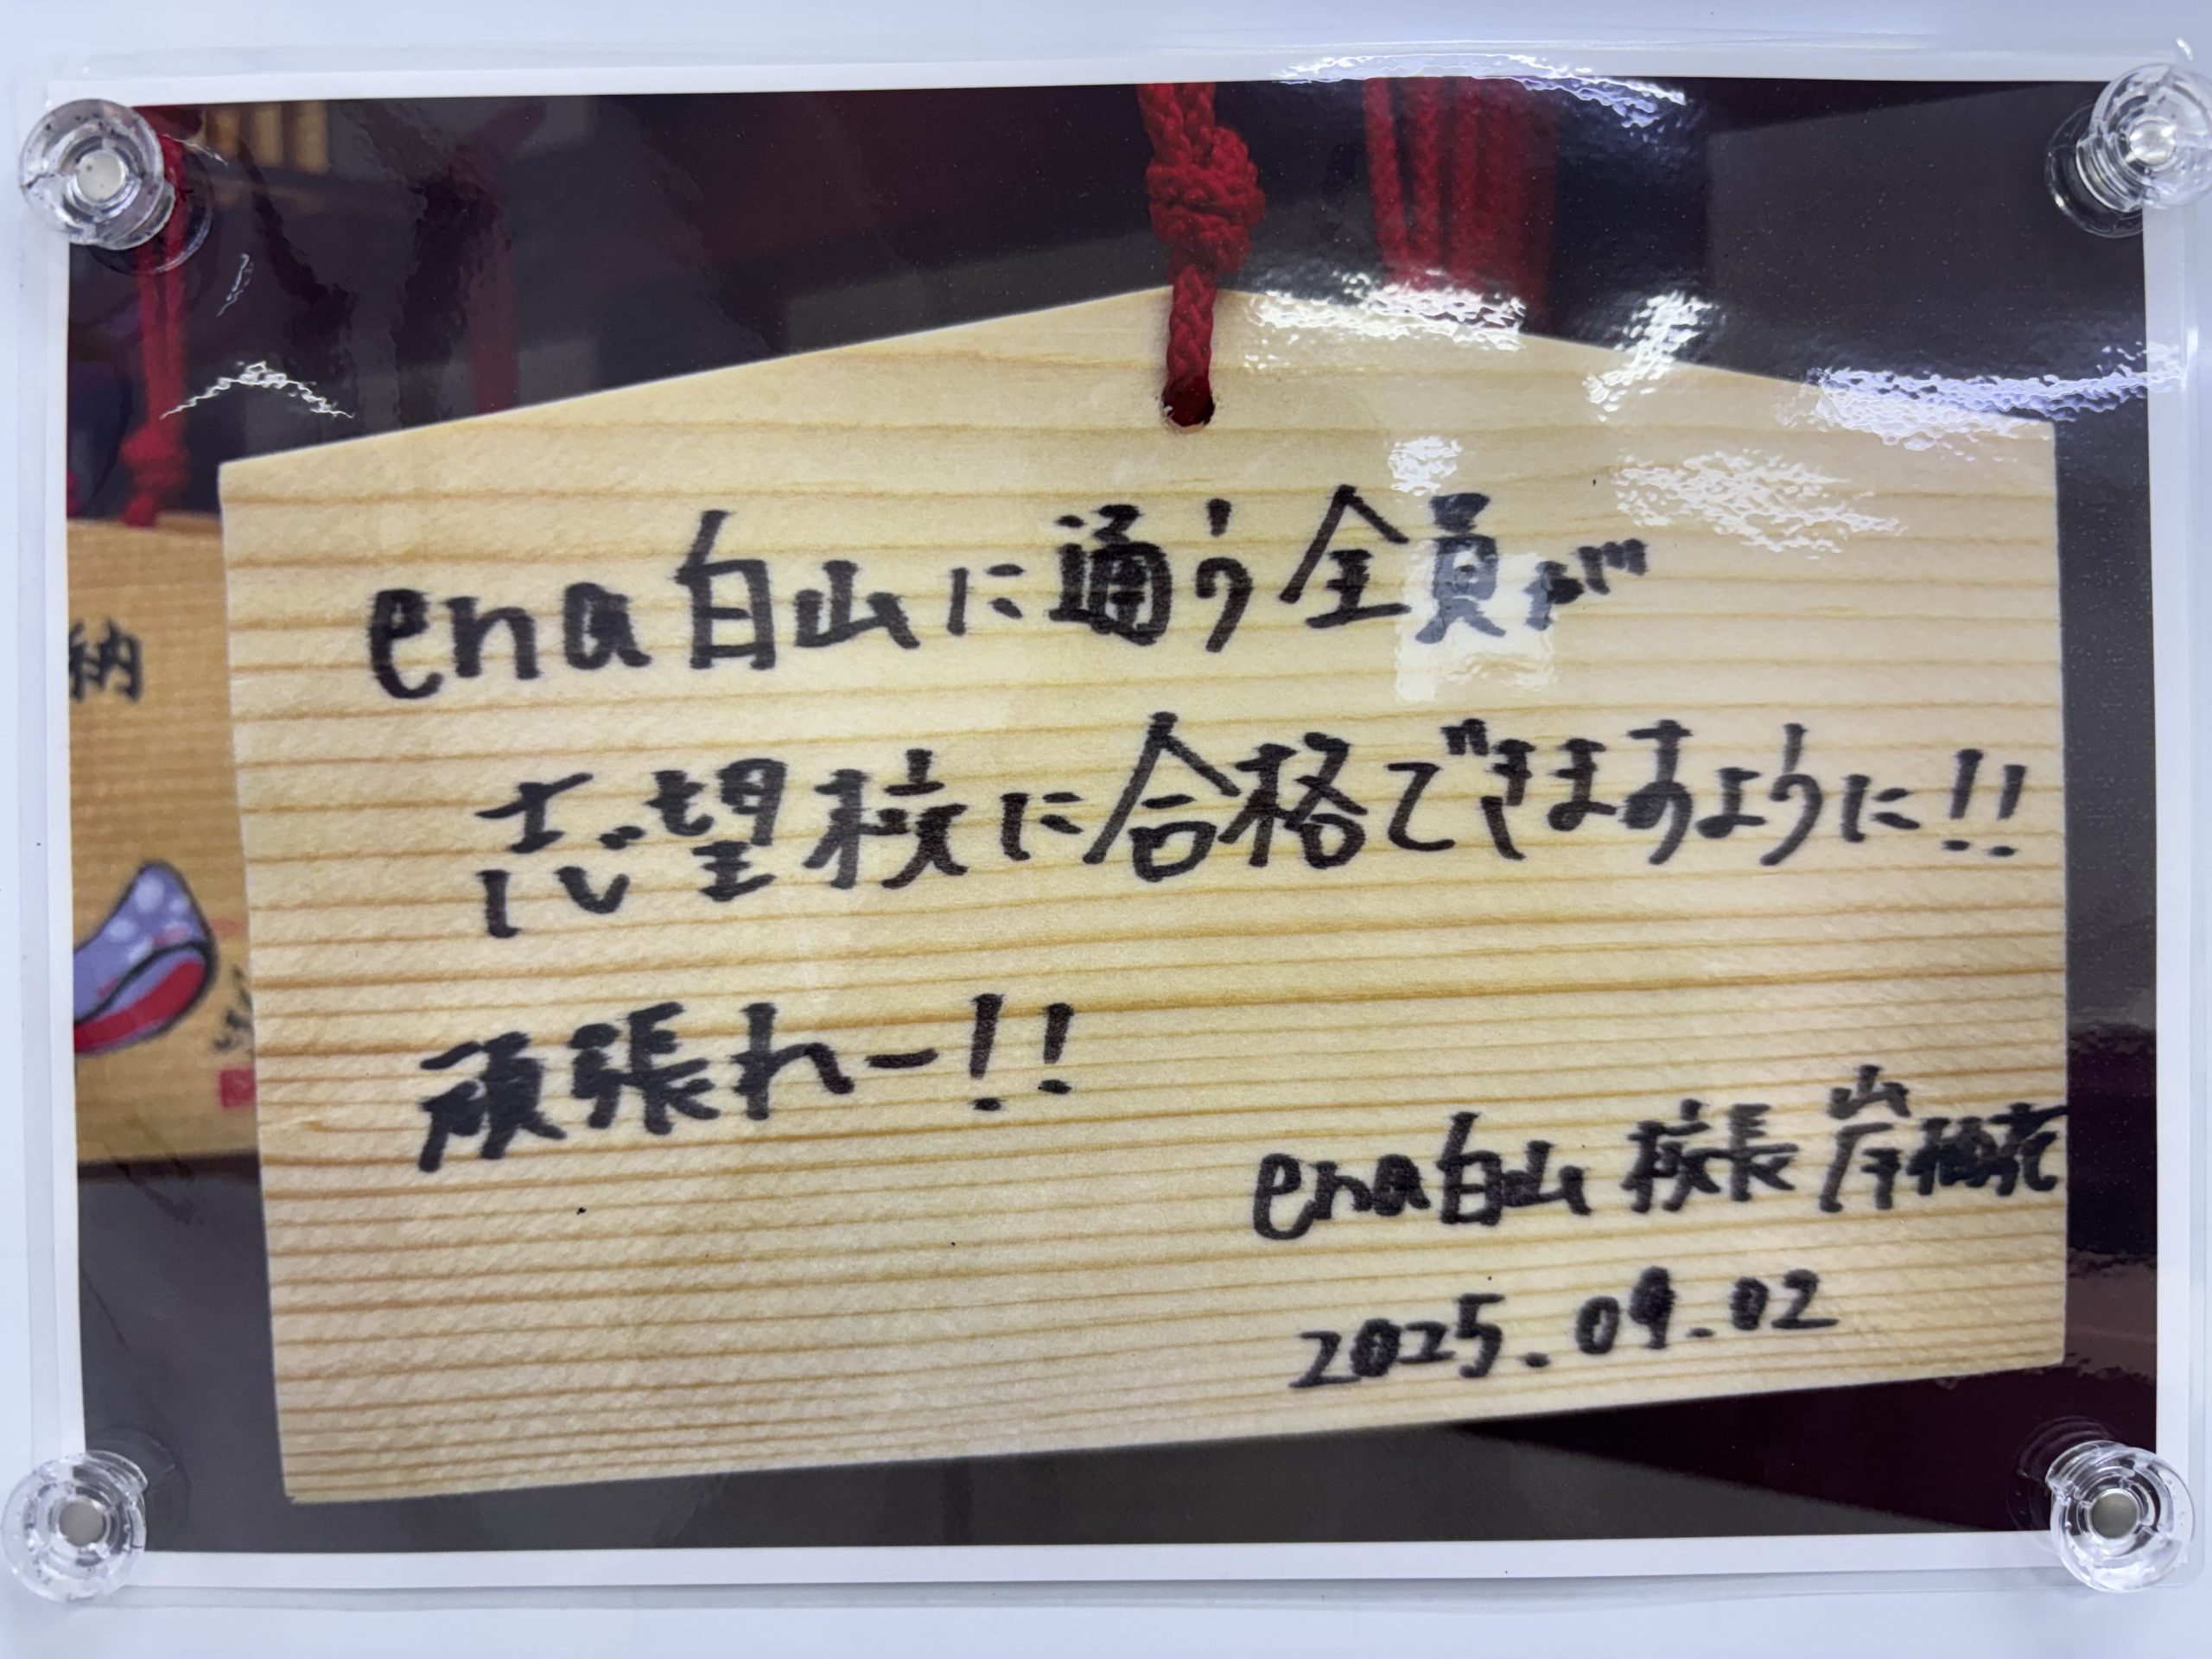 ena白山に通う全員が
志望校に合格できますように!!
頑張れー!!
ena白山 校長 岸
2025.09.02
納